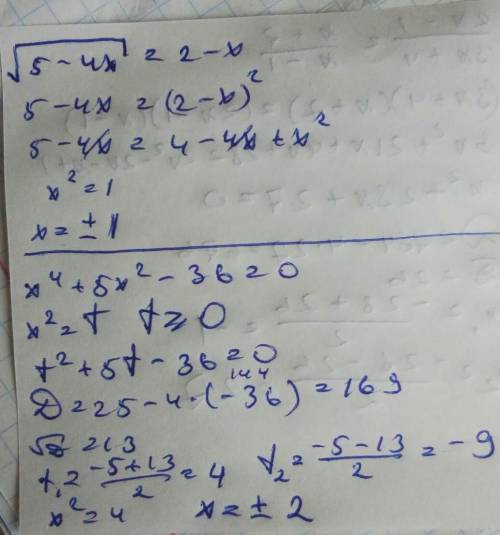 √5 - 4x = 2 - x
5 - 4x = (2 - x)²
5 - 4x = 4 - 4x + x²
x² = 1
x = ± 1
x⁴ + 5x² - 36 = 0
x² = t t ≥ 0
t² + 5t - 36 = 0
144
D = 25 - 4 · (-36) = 169
√D = 13
t₁ = (-5 + 13)/2 = 4 t₂ = (-5 - 13)/2 = -9
x² = 4 x = ± 2